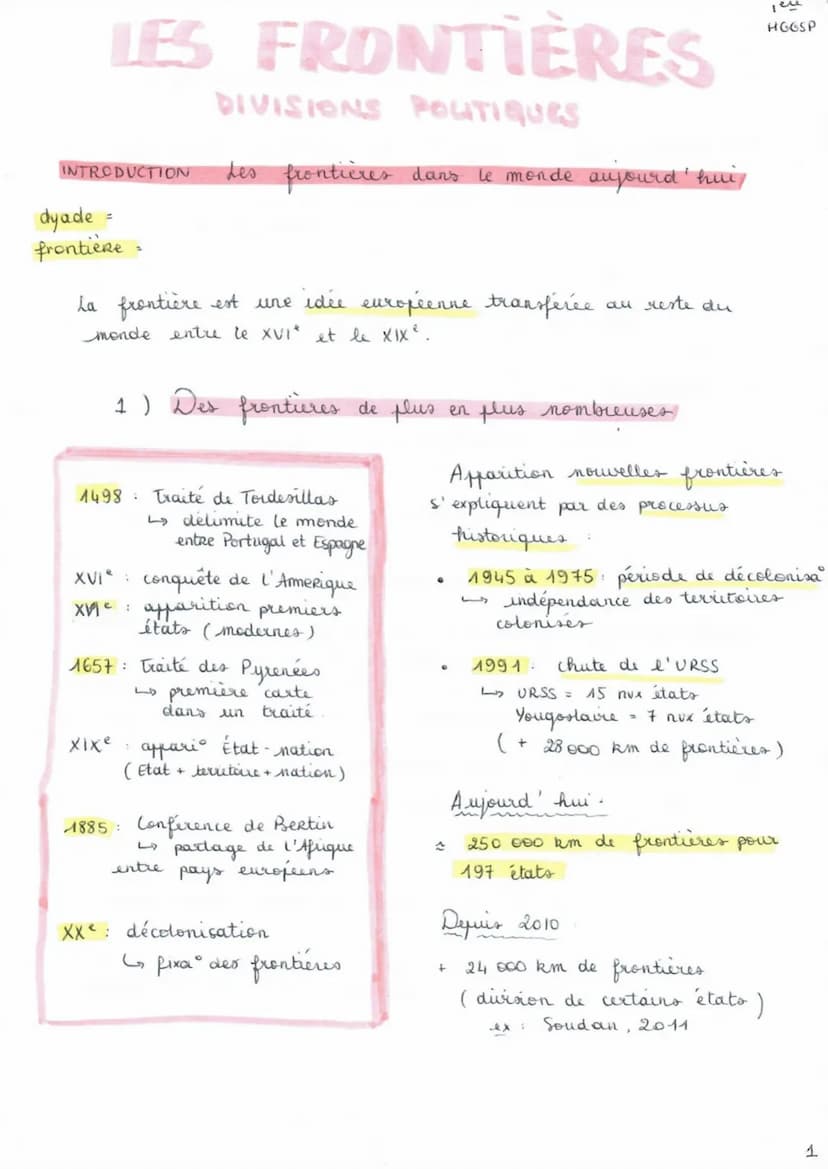 1ère
HGGSP
LES FRONTIÈRES
DIVISIONS POLITIQUES
INTRODUCTION Les frontières dans le monde aujourd'hui
dyade =
frontière =
La frontière est une idée européenne transférée au reste du
monde entre le XVIe et le XIXe.
1) Des frontières de plus en plus nombreuses
1498 : Traité de Tordesillas
↳ délimite le monde
entre Portugal et Espagne
XVIe : conquête de l'Amerique
XVIe : apparition premiers
états (modernes)
1657 : Traité des Pyrenées
↳ première carte
dans un traité.
XIXe : appario État-nation
(Etat + territoire + nation)
1885 : Conférence de Berlin
↳ partage de l'Afrique
entre pays européens
XXe : décolonisation
↳ fixao des frontières
Apparition nouvelles frontières
s'expliquent par des processus
historiques :
• 1945 à 1975 : période de décolonisao
↳ indépendance des territoires
colonisés
• 1991 : chute de l'URSS
↳ URSS = 15 nvx états
Yougoslavie = 7 nvx états
(+ 28 000 km de frontières)
Aujourd'hui :
≈ 250 000 km de frontières pour
197 états
Depuis 2010
+ 24 000 km de frontières
(division de certains états)
ex : Soudan, 2011
1